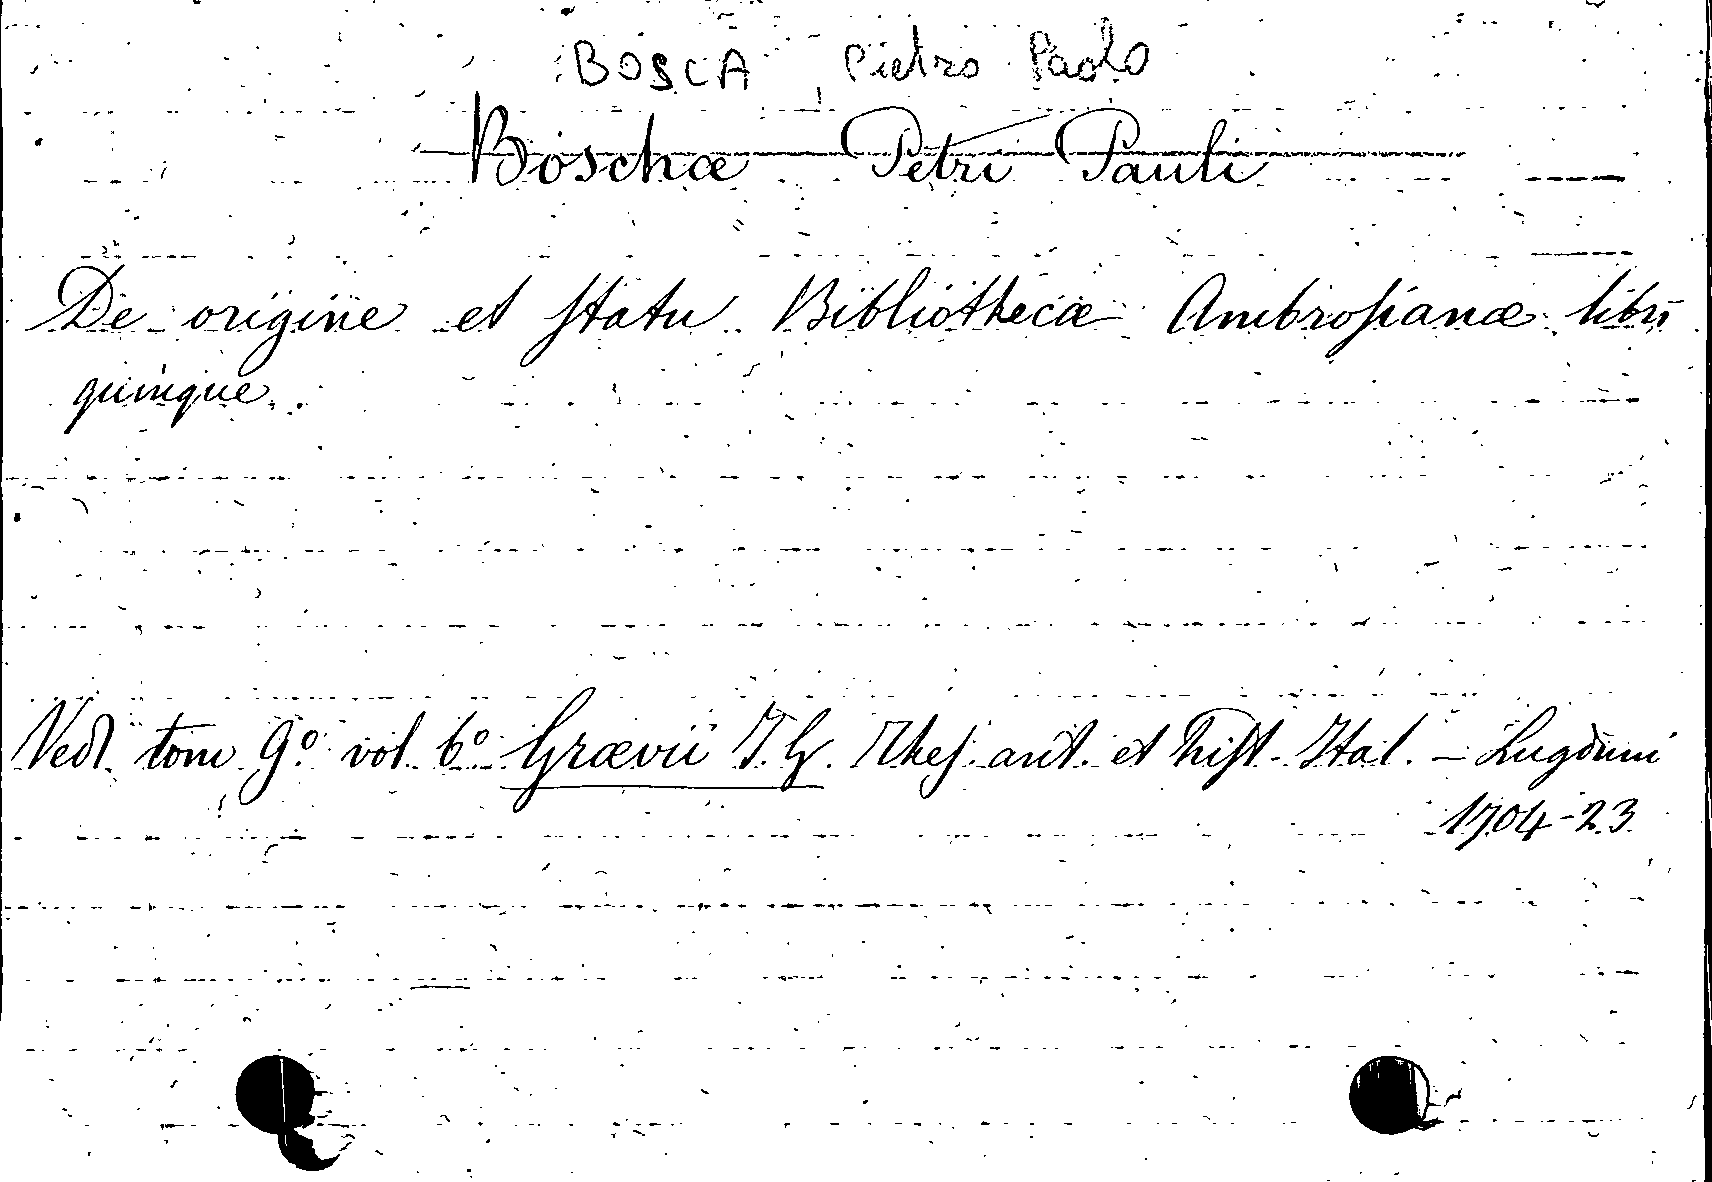 BOSCA, Pietro Paolo
Boschæ Petri Pauli
De origine et statu Bibliothecæ Ambrosianæ libri
quinque.
Ved. tom 9º vol. 6º Grævii J. G. Thes. ant. et hist. Ital. - Lugduni
1704-23